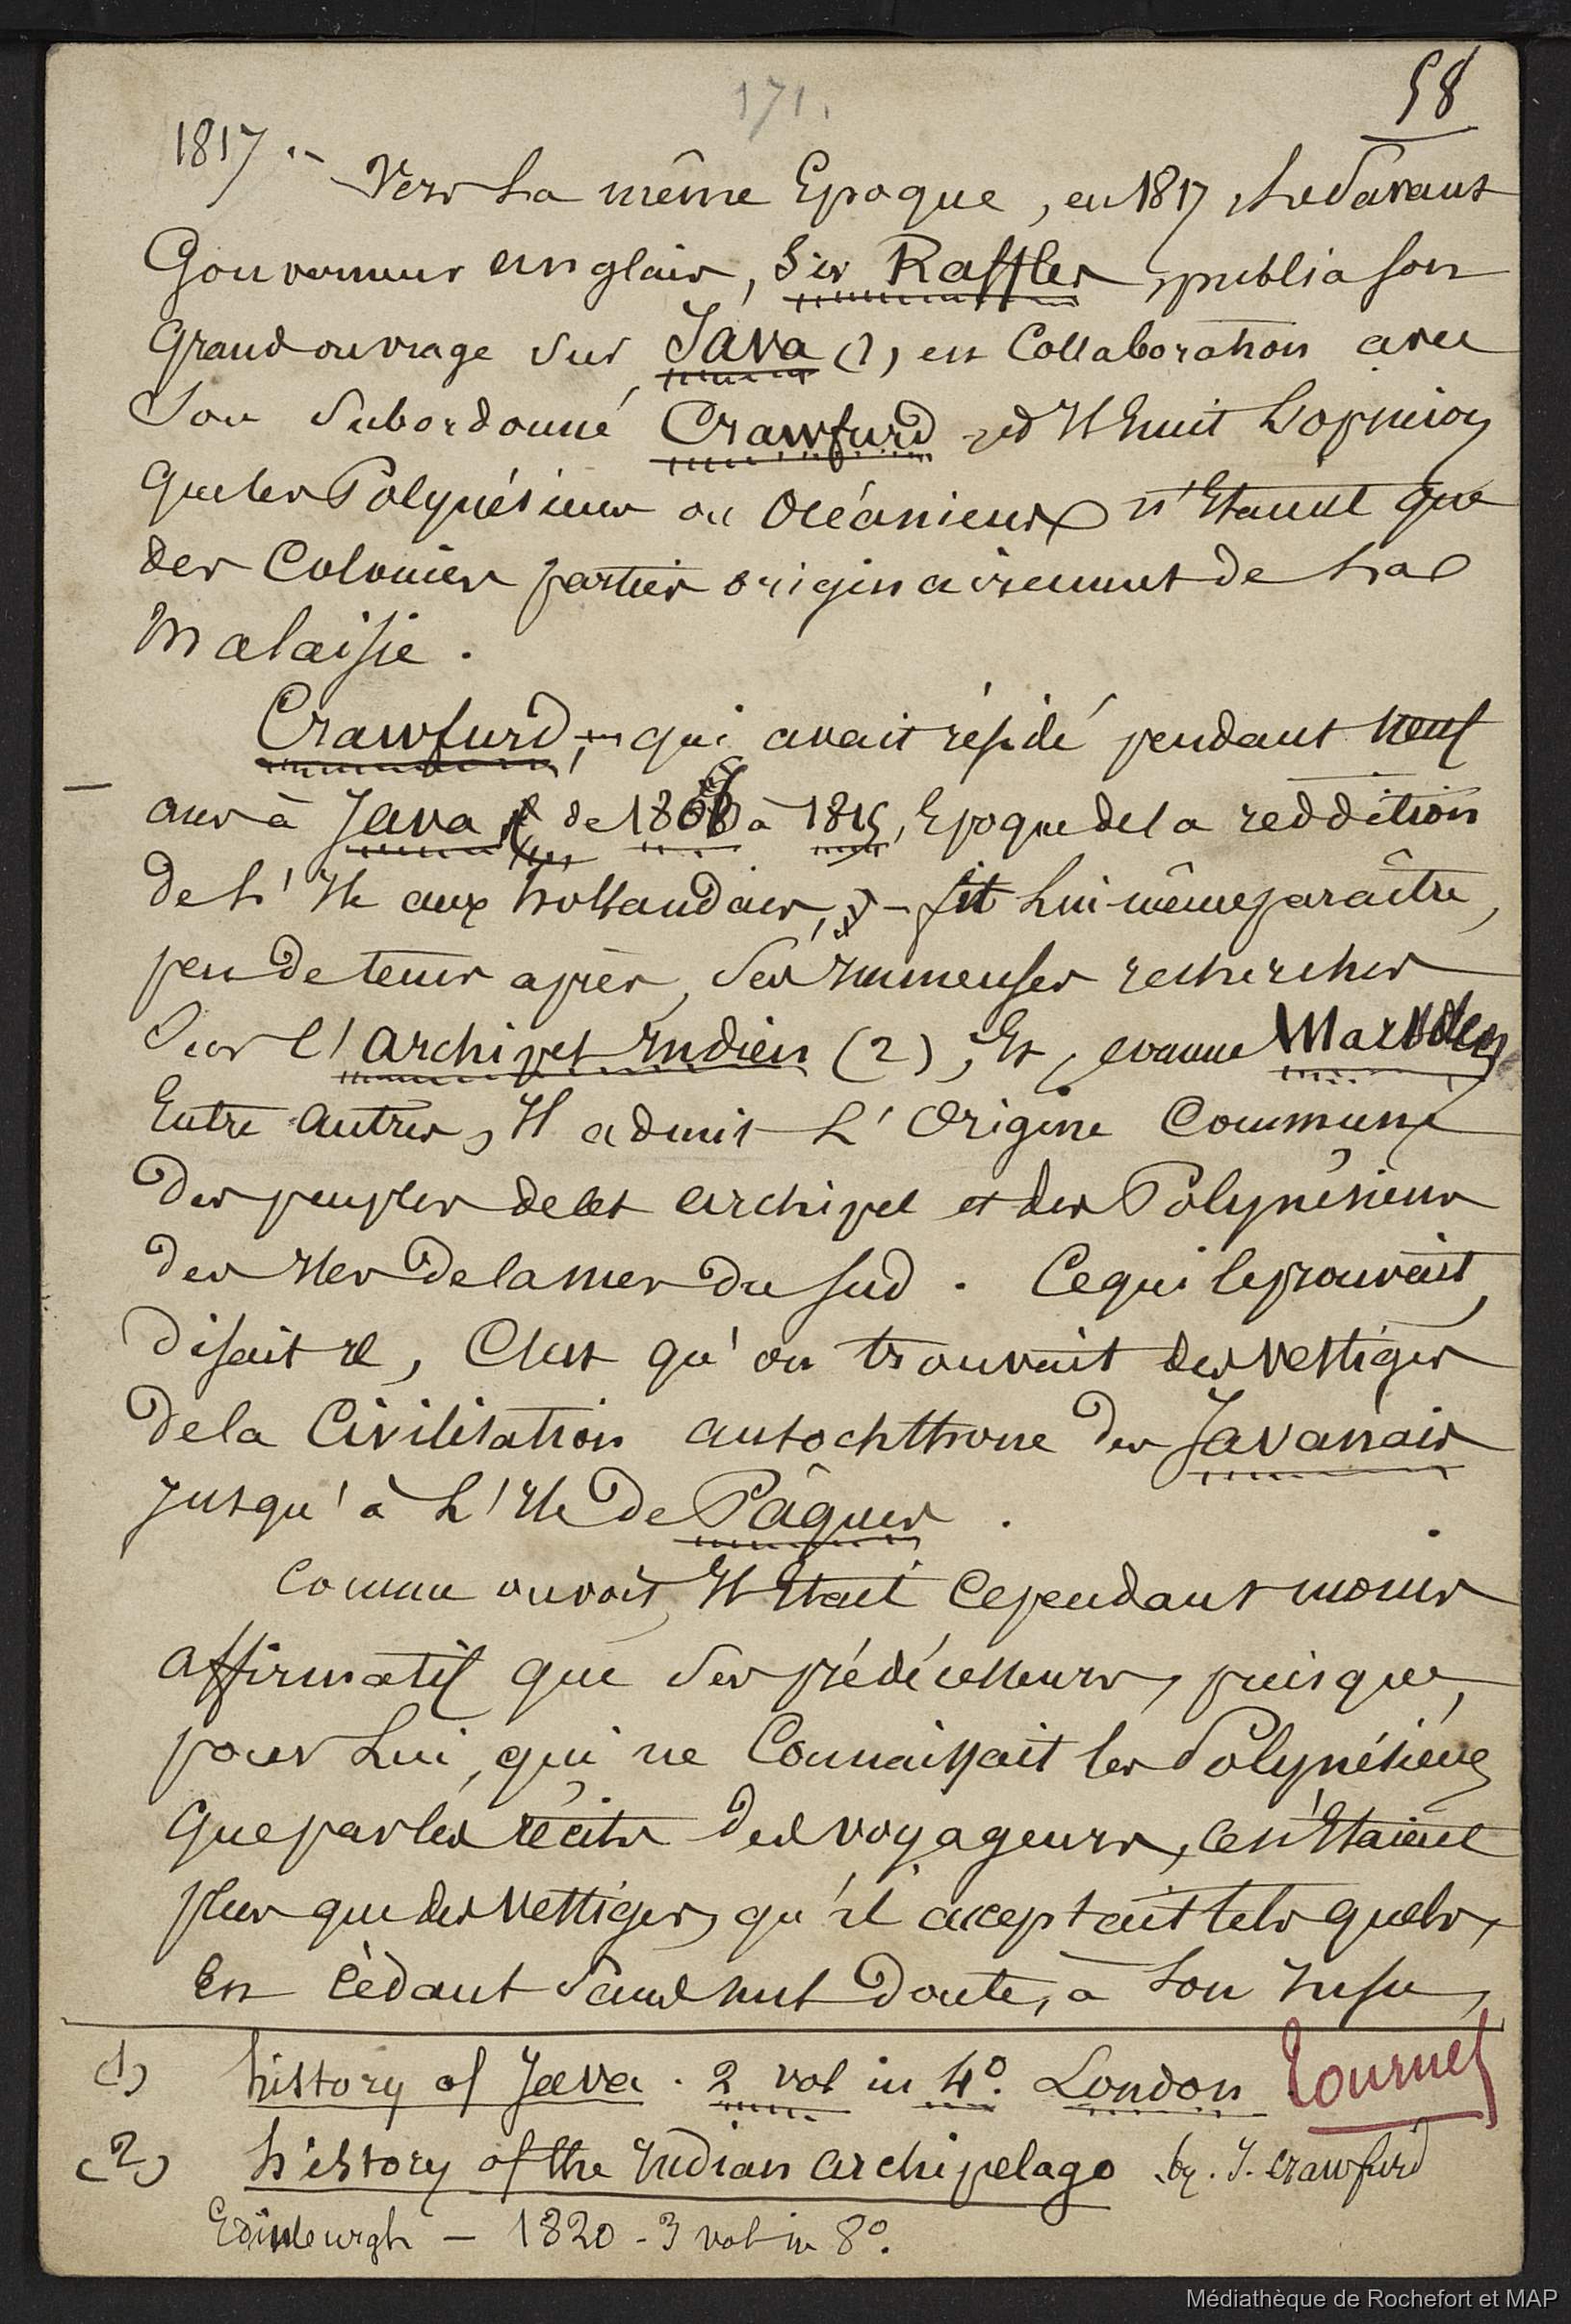 171.
58
1817.-
Vers la même Epoque, en 1817, le savant
Gouverneur anglais, Sir Raffles, publia son
Grand ouvrage sur Java (1), en Collaboration avec
son subordonné Crawfurd, et Il émit l'opinion
que les Polynésiens ou Océaniens n'Etaient que
des Colonies parties originairement de la
Malaisie.
Crawfurd, - qui avait résidé pendant neuf
ans à Java, de 18 à 1815, Epoque de la reddition
de l'Ile aux hollandais, - fit lui-même paraître,
peu de tems après, ses Immenses recherches
sur l'archipel Indien (2), Et, comme Marsden
Entre autres, Il admit L'Origine Commune
des peuples de cet archipel et des Polynésiens
des Iles de la mer du Sud. Ce qui le prouvait,
disait Il, C'est qu'on trouvait des vestiges
de la Civilisation autochthone des Javanais
jusqu'à L'Ile de Pâques.
Comme on voit, Il Etait Cependant moins
affirmatif que ses prédécesseurs, puisque,
pour Lui, qui ne Connaissait les Polynésiens
que par les récits des voyageurs, ce n'Etaient
plus que des vestiges, qu'il acceptait tels quels,
En cèdant sans nul Doute, à son Insu,
(1) history of Java. 2 vol in 4°. London
Tournez
(2) history of the Indian archipelago by. J. Crawfurd
Edinburgh - 1820 - 3 vol in 8°.
Médiathèque de Rochefort et MAP